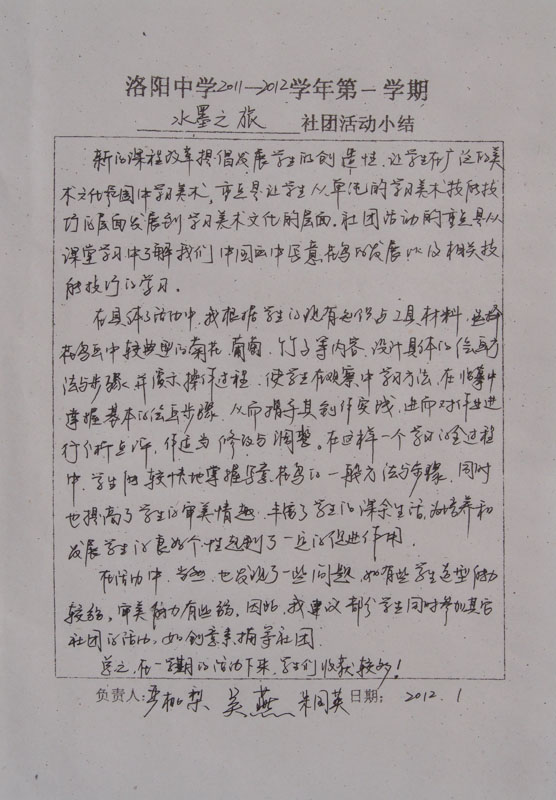 洛阳中学2011—2012学年第一学期
水墨之旅 社团活动小结
新的课程改革提倡发展学生的创造性，让学生在广泛的美
术文化氛围中学习美术，重点是让学生从单纯的学习美术技能技
巧的层面发展到学习美术文化的层面。社团活动的重点是从
课堂学习中了解我们中国画中写意花鸟的发展以及相关技
能技巧的学习。
在具体的活动中，我根据学生的现有知识与工具材料，选择
花鸟画中较典型的菊花、葡萄、竹子等内容，设计具体的绘画方
法与步骤，并演示操作过程，使学生在观察中学习方法，在临摹中
掌握基本的绘画步骤，从而指导其创作实践，进而对作业进
行分析点评，作适当修改与调整。在这样一个学习的全过程
中，学生能较快地掌握写意花鸟的一般方法与步骤，同时
也提高了学生的审美情趣，丰富了学生的课余生活，为培养和
发展学生的良好个性起到了一定的促进作用。
在活动中，当然，也发现了一些问题，如有些学生造型能力
较弱，审美能力有些弱，因此，我建议部分学生同时参加其它
社团的活动，如创意素描等社团。
总之，在一学期的活动下来，学生们收获较多！
负责人: 吴燕 朱国英 日期: 2012.1